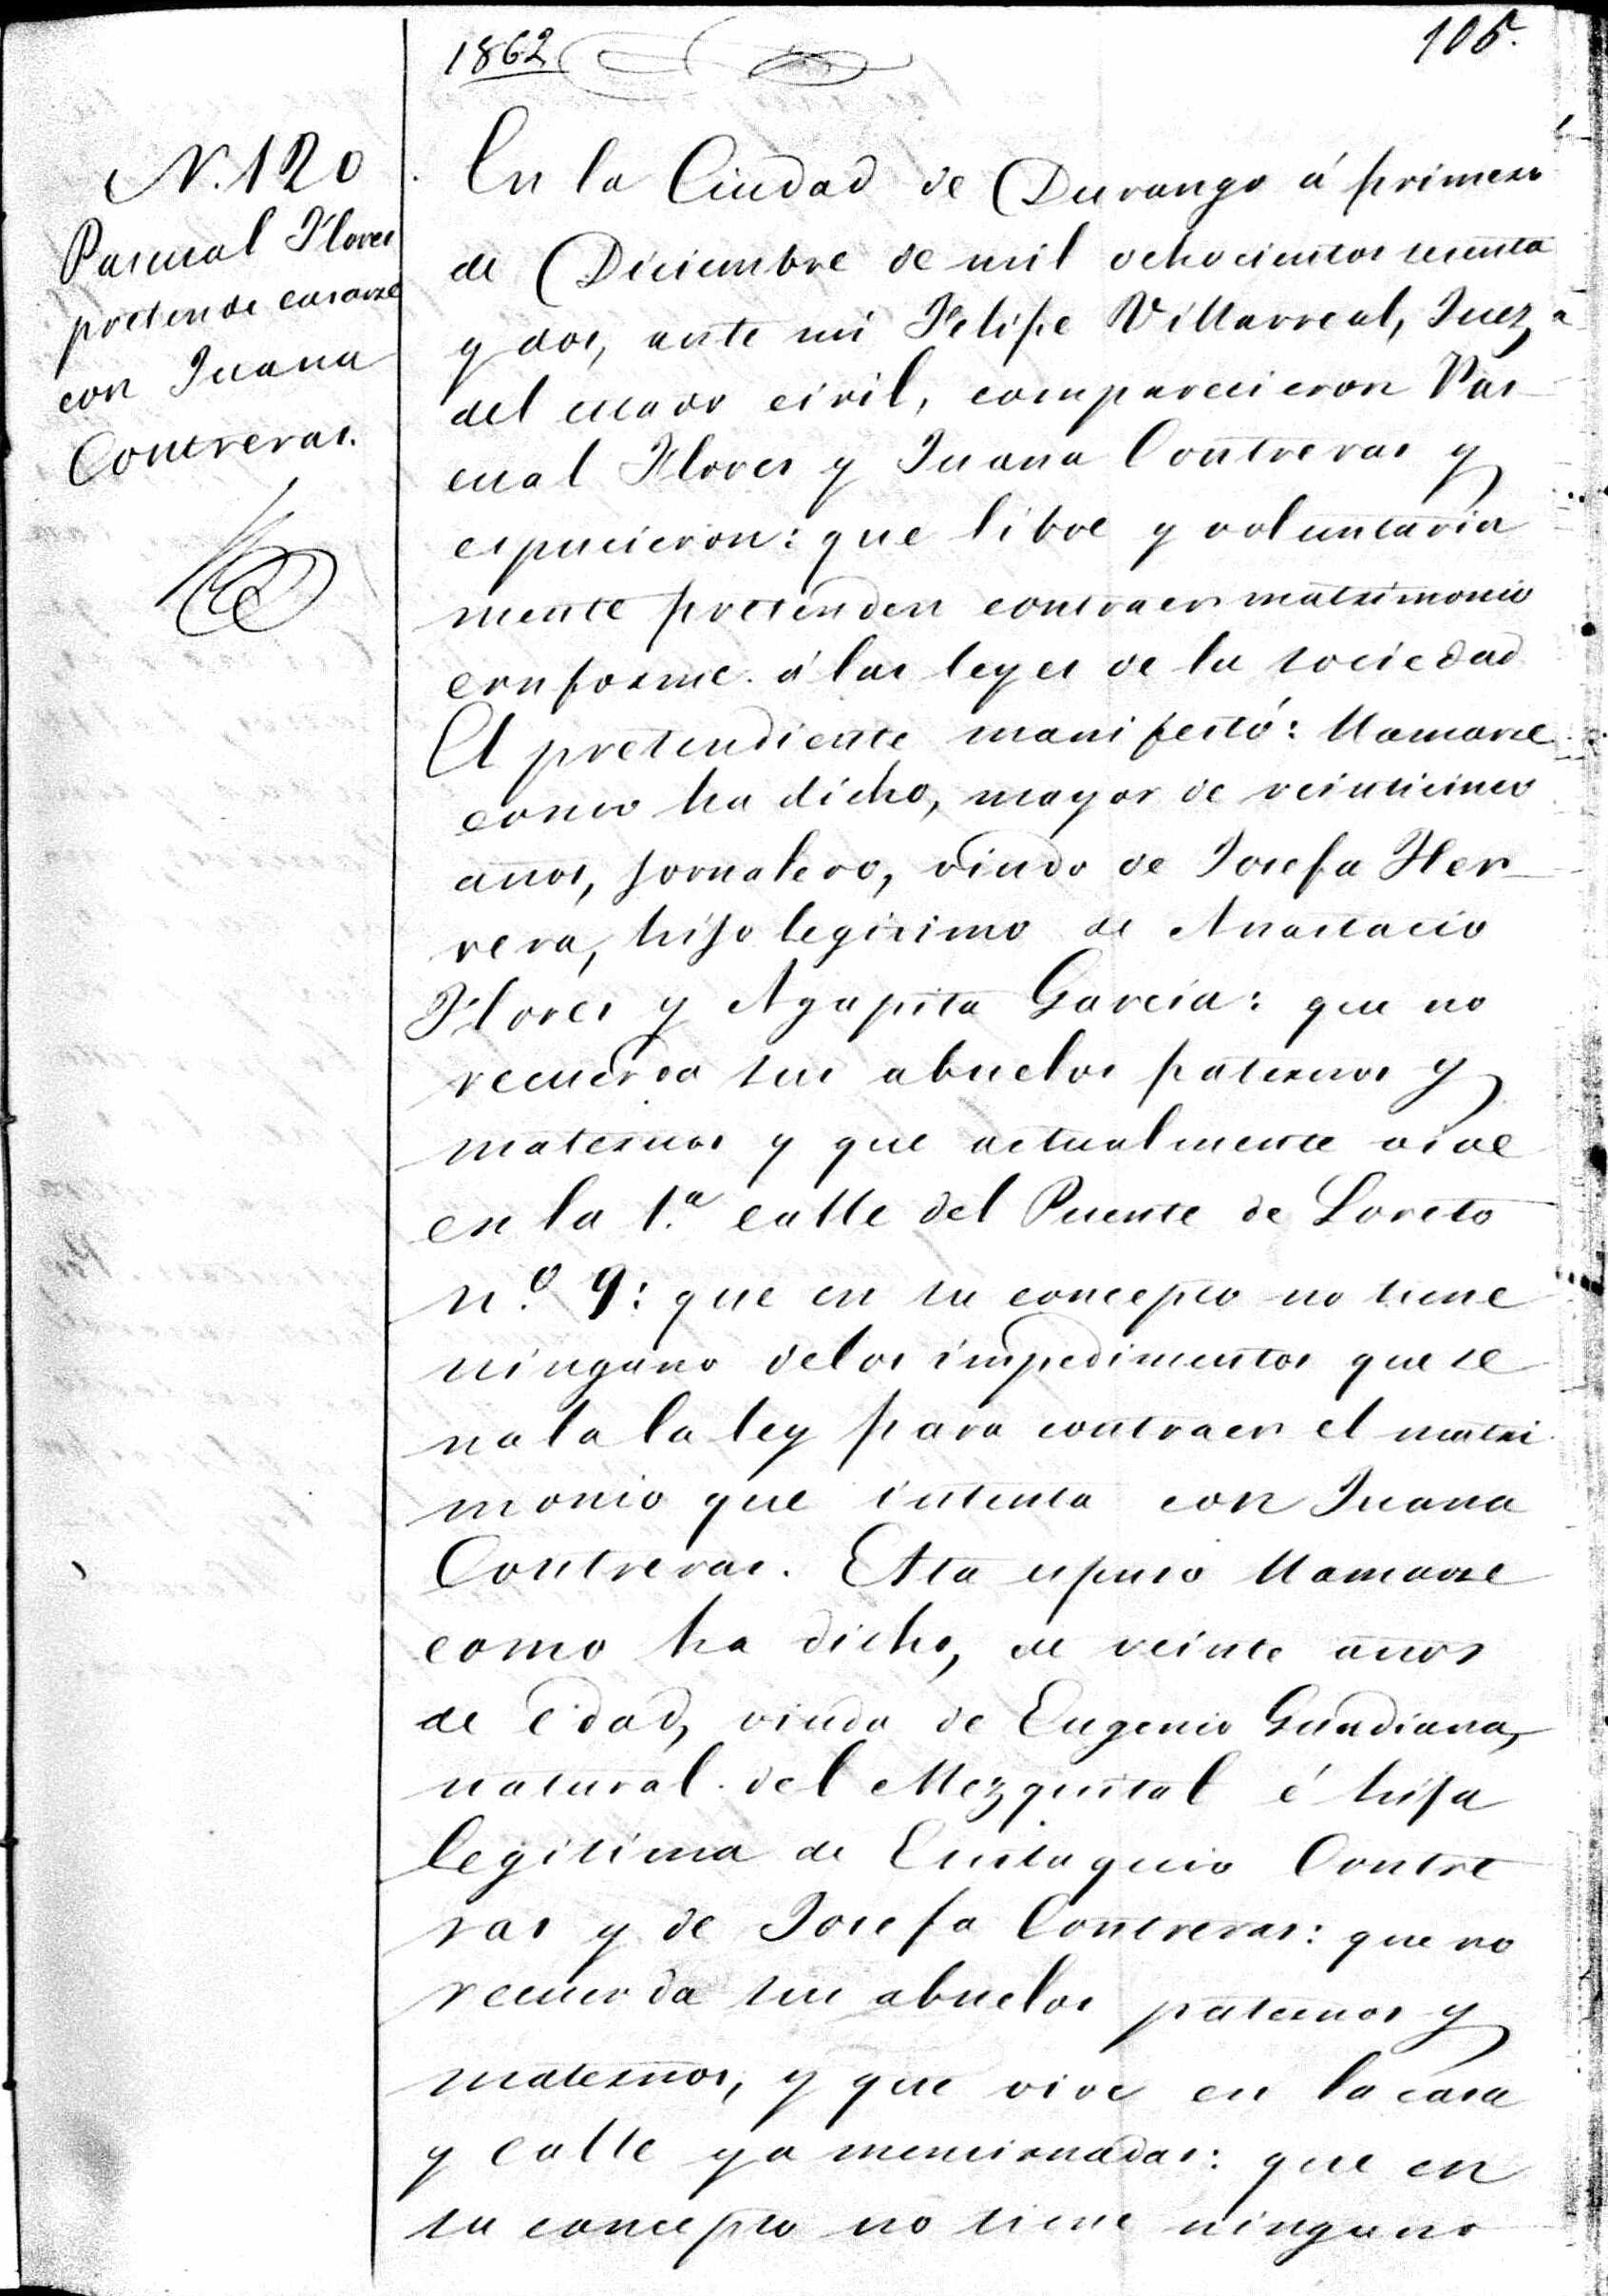 1862
105.
N. 120
Pascual Flores
pretende casarse
con Juana
Contreras.
En la Ciudad de Durango á primero
de Diciembre de mil ochocientos sesenta
y dos, ante mi Felipe Villarreal, Juez
del estado civil, comparecieron Pas-
cual Flores y Juana Contreras y
espucieron: que libre y voluntaria
mente pretenden contraer matrimonio
conforme á las leyes de la sociedad
El pretendiente manifestó: llamarse
como ha dicho, mayor de veinticinco
años, jornalero, viudo de Josefa Her-
rera, hijo legitimo de Anastacio
Flores y Agapita Garcia: que no
recuerda sus abuelos paternos y
maternos y que actualmente vive
en la 1.a calle del Puente de Loreto
n.o 9: que en su concepto no tiene
ninguno delos impedimentos que se
ñala la ley para contraer el matri
monio que intenta con Juana
Contreras. Esta espuso llamarse
como ha dicho, de veinte años
de edad, viuda de Eugenio Gundiana,
natural del Mezquital é hija
legitima de Eustaquio Contre
ras y de Josefa Contreras: que no
recuerda sus abuelos paternos y
maternos, y que vive en la casa
y calle ya mencionadas: que en
su concepto no tiene ninguno